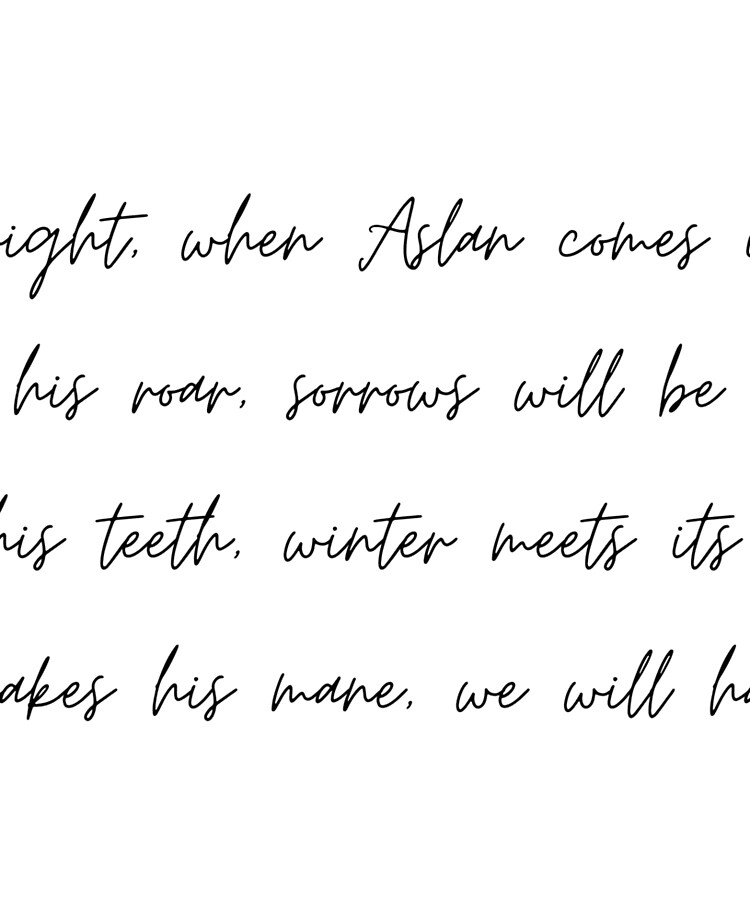 ight, when Aslan comes i
his roar, sorrows will be
his teeth, winter meets its
akes his mane, we will ha